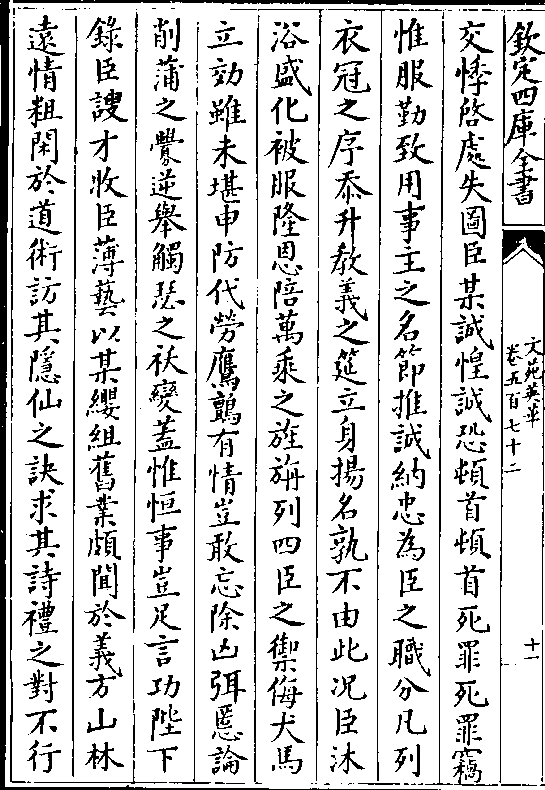 欽定四庫全書
文苑英華
卷五百七十二
十一
交悸啓處失圖臣某誠惶誠恐頓首頓首死罪死罪竊
惟服勤致用事主之名節推誠納忠為臣之職分凡列
衣冠之序忝升教義之筵立身揚名孰不由此况臣沐
浴盛化被服隆恩陪萬乘之旌旃列四臣之禦侮犬馬
立効雖未堪申防代勞鷹鸇有情豈敢忘除凶弭慝論
削蒲之釁逆舉觸瑟之祅變蓋惟恒事豈足言功陛下
錄臣謏才收臣薄藝以某纓組舊業頗聞於義方山林
遠情粗閑於道術訪其隱仙之訣求其詩禮之對不行